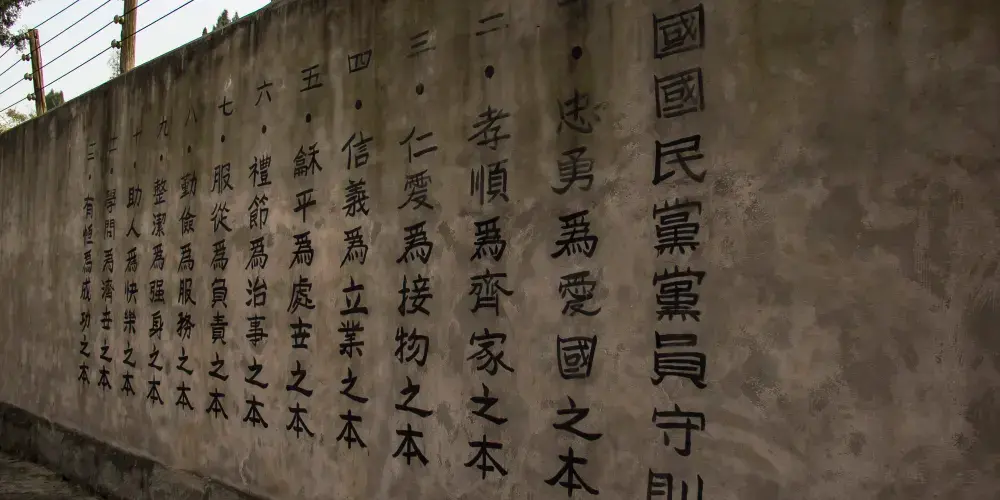 國國民黨黨員守則
一·忠勇爲愛國之本
二·孝順爲齊家之本
三·仁愛爲接物之本
四·信義爲立業之本
五·龢平爲處世之本
六·禮節爲治事之本
七·服從爲負責之本
八·勤儉爲服務之本
九·整潔爲强身之本
十·助人爲快樂之本
十一·學問爲濟世之本
十二·有恆爲成功之本